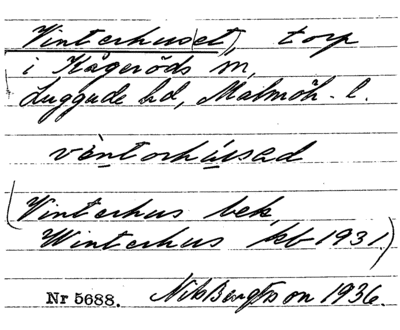 Vinterhus(et), torp
i Kågeröds sn,
Luggude hd, Malmöh. l.
vèntorhúsad
(Vinterhus bek,
Winterhus kb 1931.)
Nr 5688. Nils Bengtsson 1936.